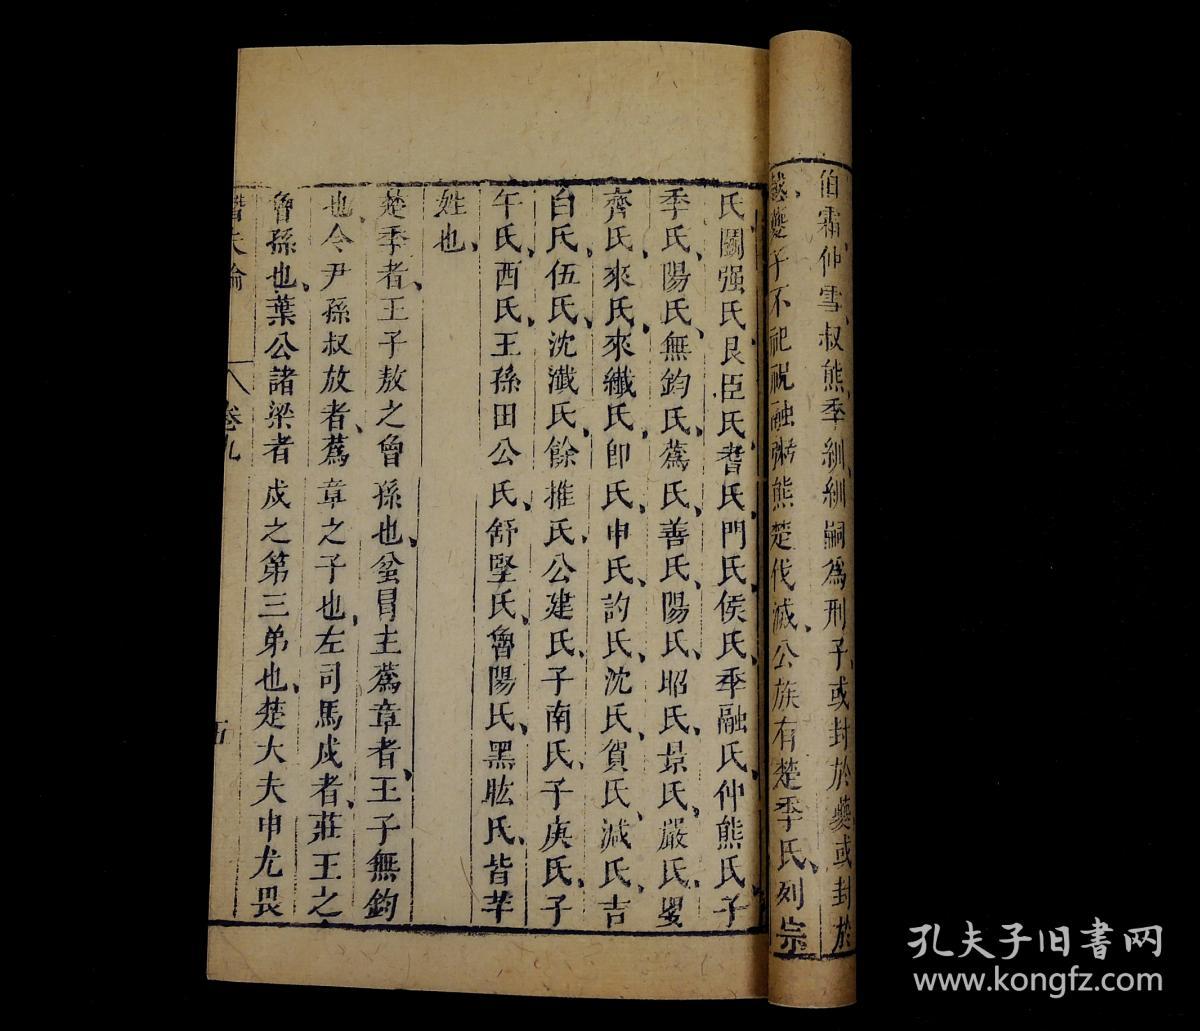 伯霜、仲雪、叔熊、季紃、紃嗣爲刑子、或封於夔、或封於
越、夔子不祀祝融粥熊楚伐滅、公族有楚季氏、列宗
氏、鬬强氏、艮臣氏、耆氏、門氏、侯氏、季融氏、仲熊氏、子
季氏、陽氏、無鈞氏、蒍氏、善氏、陽氏、昭氏、景氏、嚴氏、嬰
齊氏、來氏、來纖氏、卽氏、申氏、訋氏、沈氏、賀氏、減氏、吉
白氏、伍氏、沈瀸氏、餘推氏、公建氏、子南氏、子庚氏、子
午氏、西氏、王孫田公氏、舒堅氏、魯陽氏、黑肱氏、皆芈
姓也、
楚季者、王子敖之曾孫也、蚠冒生蒍章者、王子無鈞
也、令尹孫叔放者、蒍章之子也、左司馬戍者、莊王之
曾孫也、葉公諸梁者戍之第三弟也、楚大夫申尤畏
潛夫論 卷九 五
孔夫子旧書网
www.kongfz.com